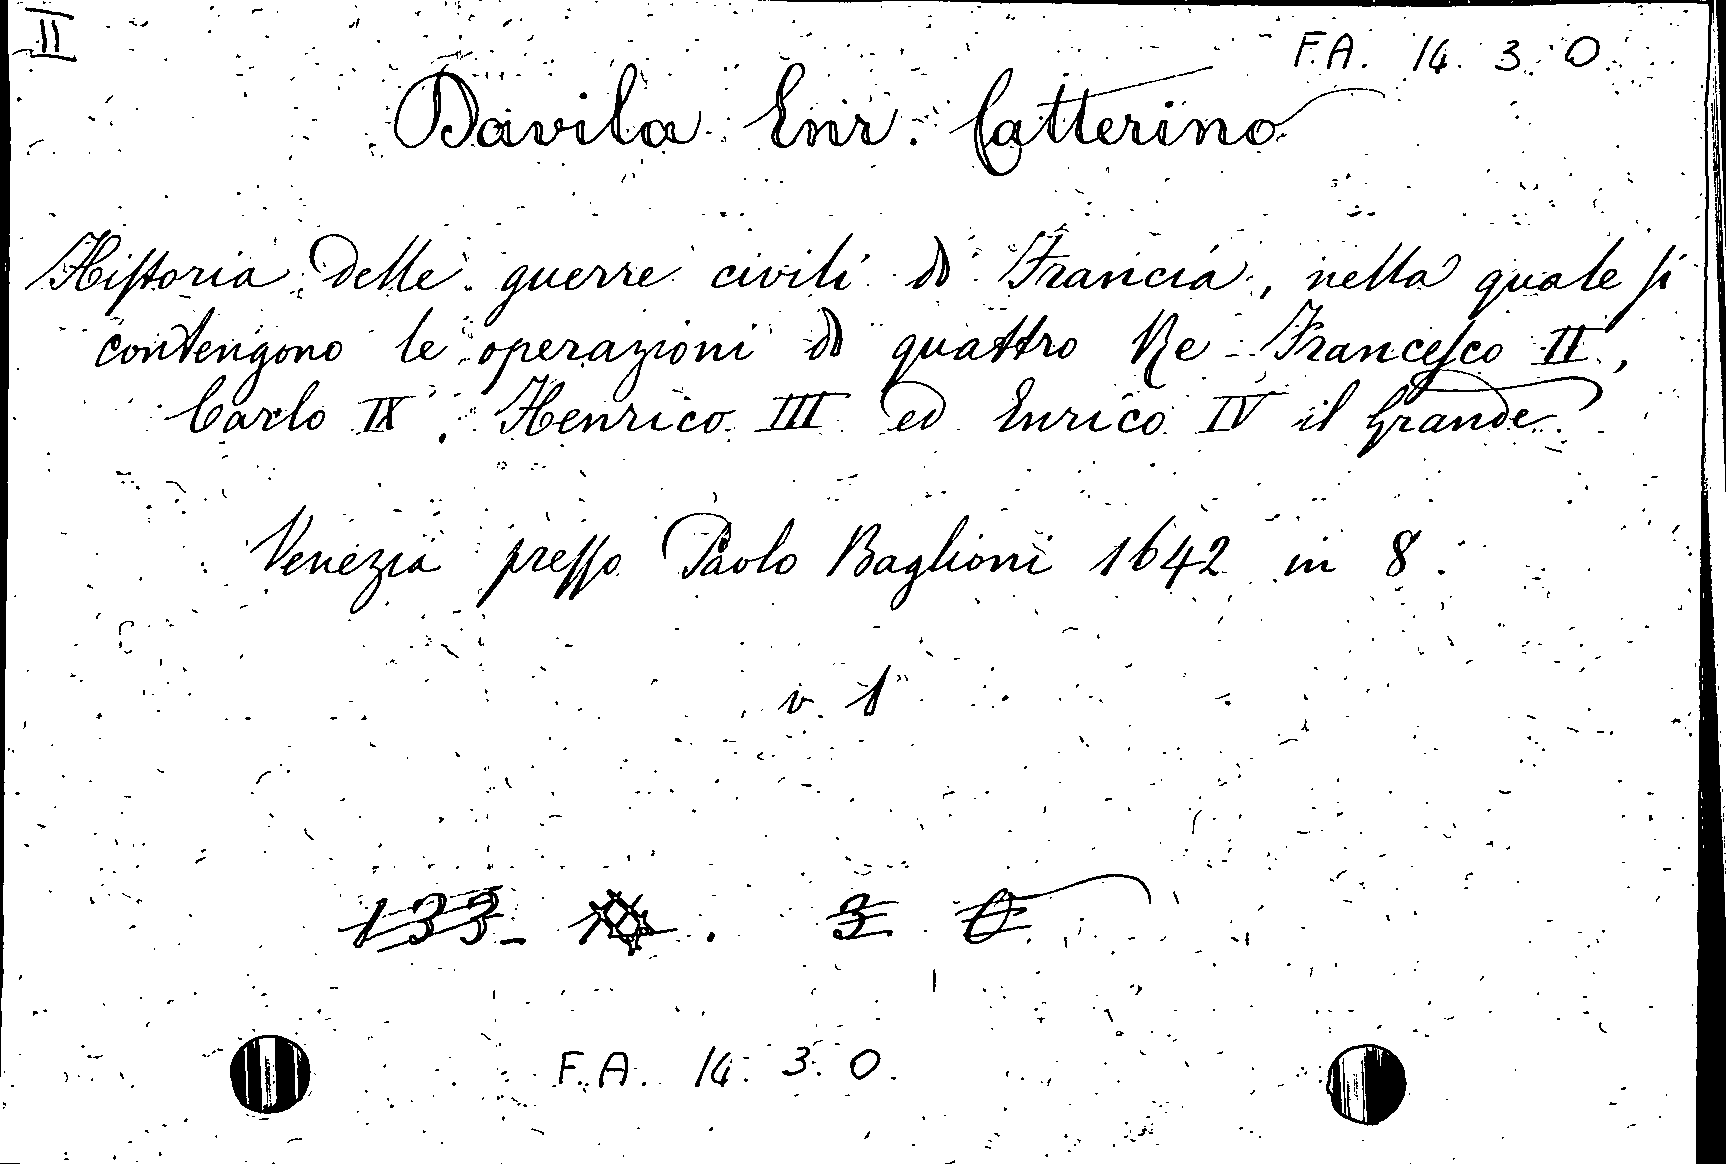 II
F.A. 14. 3. O.
Davila Enr. Catterino
Hiſtoria delle guerre civili di Francia, nella quale ſi
contengono le operazioni di quattro Re Franceſco II,
Carlo IX, Henrico III ed Enrico IV il Grande.
Venezia preſſo Paolo Baglioni 1642 in 8.
v. 1
133- . 3 O
F.A. 14. 3. O.